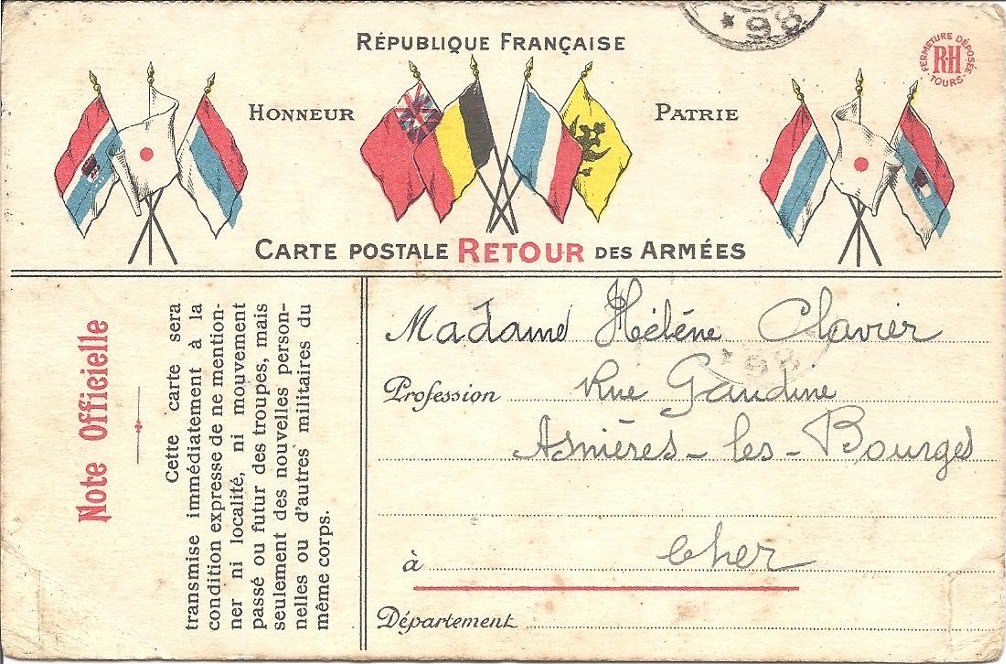 RÉPUBLIQUE FRANÇAISE
HONNEUR
PATRIE
FERMETURE DÉPOSÉE
R·H
·TOURS·
*98
CARTE POSTALE RETOUR DES ARMÉES
Note Officielle
Cette carte sera
transmise immédiatement à la
condition expresse de ne mention-
ner ni localité, ni mouvement
passé ou futur des troupes, mais
seulement des nouvelles person-
nelles ou d'autres militaires du
même corps.
Madame Hélène Clavier
*98
Profession Rue Gaudine
Asnières-les-Bourges
à Cher
Département